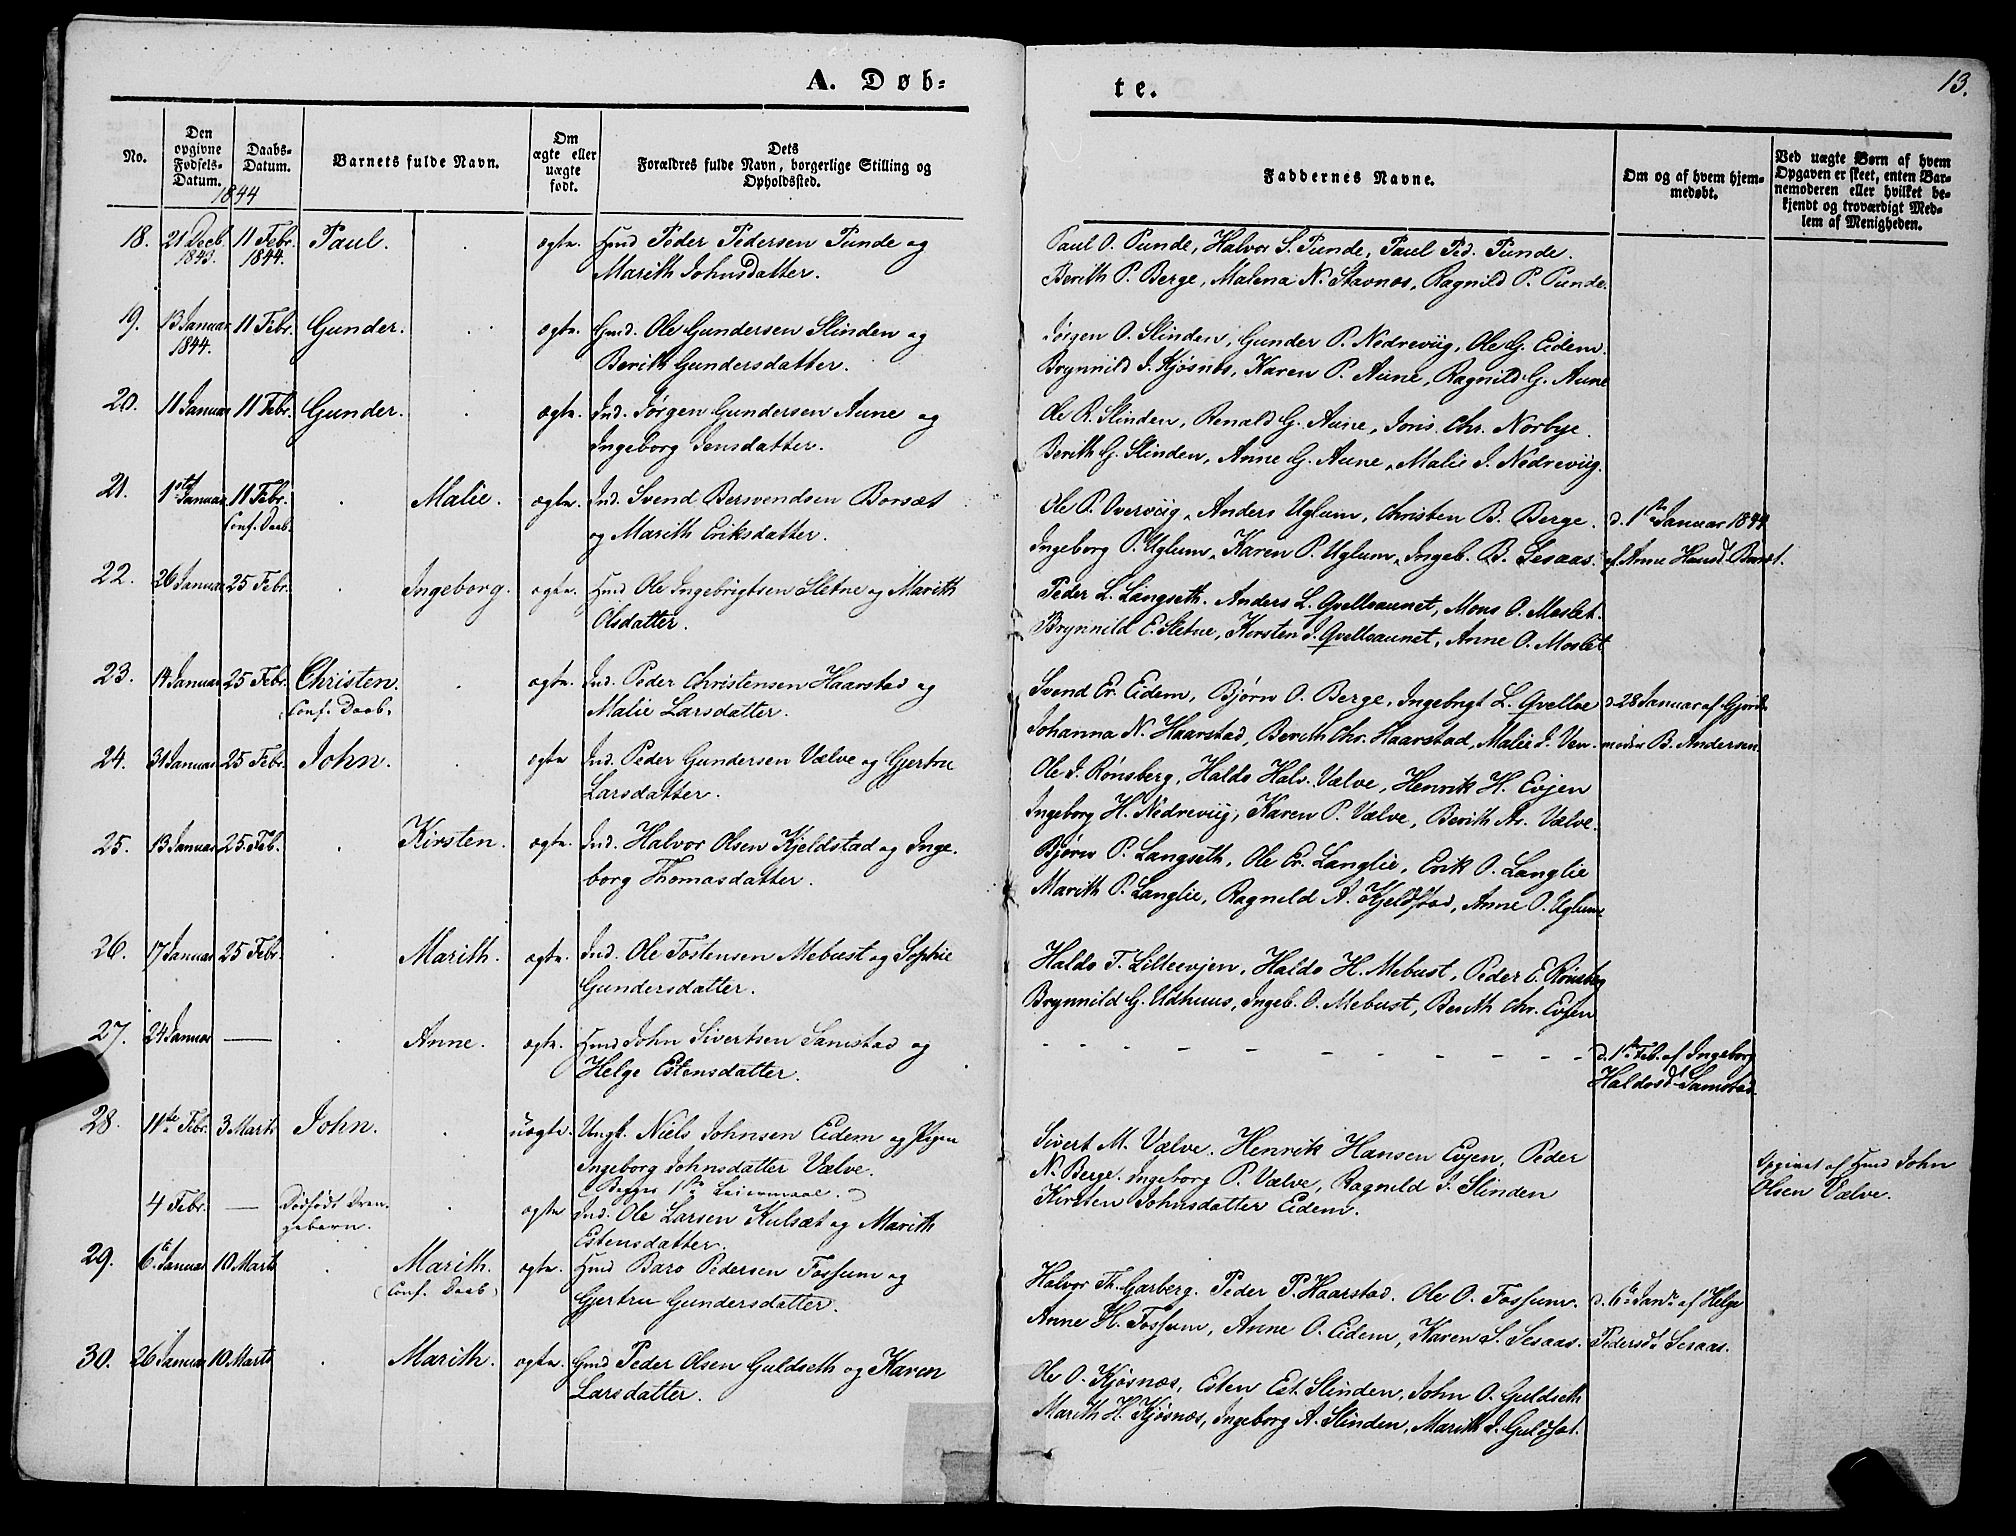 A. Døb-
te.
13.
No.
Den opgivne Fødsels-Datum.
Daabs-Datum.
Barnets fulde Navn.
Om ægte eller uægte født.
Dets Forældres fulde Navn, borgerlige Stilling og Opholdssted.
Faddernes Navne.
Om og af hvem hjemmedøbt.
Ved uægte Børn af hvem Opgaven er skeet, enten Barnemoderen eller hvilket bekjendt og troværdigt Medlem af Menigheden.
1844
18. 21 Decb. 1843. 11 Febr. 1844. Paul. ægte. Hmd Peder Pedersen Punde og
Marith Johnsdatter.
Paul O. Punde, Halvor S. Punde, Paul Ped. Punde.
Berith P. Berge, Malena N. Stavnos, Ragnild P. Punde.
19. 13 Januar 1844. 11 Febr. Gunder. ægte. Gmd. Ole Gundersen Slinden og
Berith Gundersdatter.
Jørgen O. Slinden, Gunder P. Nedreviig, Ole G. Eidem.
Brynnild J. Kjøsnes, Karen P. Aune, Ragnild G. Aune
20. 11 Januar 11 Febr. Gunder. ægte. Ind. Jørgen Gundersen Aune og
Ingeborg Jensdatter.
Ole R. Slinden, Renald G. Aune, Jons Chr. Norbye.
Berith G. Slinden, Anne G. Aune, Malie J. Nedreviig.
21. 1ste Januar 11 Febr. Conf. Daab. Malie. ægte. Ind. Svend Berwendsen Borsæt
og Marith Eriksdatter.
Ole P. Overviig, Anders Uglum, Christen B. Berge.
Ingeborg P. Uglum, Karen P. Uglum, Ingeb. B. Sesaas.
d. 1ste Januar 1844
af Anne Hansd. Borsæt.
22. 26 Januar 25 Febr. Ingeborg. ægte. Hmd Ole Ingebrigtsen Sletne og Marith
Olsdatter.
Peder L. Langseth. Anders L. Qvelloaunet, Mons O. Moslet.
Brynnild E. Sletne, Kirsten J. Qvelloaunet, Anne O. Moslet
23. 14 Januar 25 Febr. Christen. Conf. Daab. ægte. Ind. Peder Christensen Haarstad og
Malie Larsdatter.
Svend Er. Eidem, Bjørn O. Berge, Ingebrigt L. Qvelloe
Johanna N. Haarstad, Berith Chr. Haarstad, Malie J. Ven.
d. 28 Januar af Gjord-
moder B. Andersen.
24. 31 Januar 25 Febr. John. ægte Ind. Peder Gundersen Vælve og Gjertru
Larsdatter.
Ole J. Rønsberg, Haldo Halv. Vælve, Henrik H. Evjen
Ingeborg H. Nedreviig, Karen P. Vælve, Berith Ar. Vælve.
25. 13 Januar 25 Feb. Kirsten. ægte. Ind. Halvor Olsen Kjeldstad og Inge-
borg Thomasdatter.
Bjørn P. Langseth, Ole Er. Langlie, Erik O. Langlie
Marith P. Langlie, Ragnild A. Kjeldstad, Anne P. Uglum
26. 17 Januar 25 Febr. Marith. ægte. Ind. Ole Tostensen Mebust og Sophie
Gundersdatter.
Haldo T. Lilleevjen, Haldo H. Mebust, Peder E. Rønsberg
Brynnild G. Udhuus, Ingeb. O. Mebust, Berith Chr. Evjen
27. 24 Januar — Anne. ægte. Hmd John Sivertsen Samstad og
Helge Estensdatter.
d. 1ste Feb. af Ingeborg
Haldosd. Samstad.
28. 11te Febr. 3 Marts John. uægte. Ungk. Niels Johnsen Eidem og Pigen
Ingeborg Johnsdatter Vælve.
(Begges 1ste Leiermaal.)
Sivert M. Vælve. Henrik Hansen Evjen, Peder
N. Berge. Ingeborg P. Vælve, Ragnild J. Slinden
Kirsten Johnsdatter Eidem.
Opgivet af Hmd John
Olsen Vælve.
4 Febr. — Dødfødt Dren-
gebarn. ægte Ind. Ole Larsen Kulsæt og Marith
Estensdatter.
29. 6te Januar 10 Marts Marith. (Conf. Daab) ægte. Hmd Baro Pedersen Fossum og
Gjertru Gundersdatter.
Halvor Th. Garberg. Peder P. Haarstad. Ole O. Fossum.
Anne H. Fossum, Anne O. Eidem, Karen S. Sesaas.
d. 6te Jan. af Helge
Pedersd. Sesaas.
30. 26 Januar 10 Marts Marith. ægte. Gmd Peder Olsen Guldseth og Karen
Larsdatter.
Ole O. Kjøsnæs, Esten Est. Slinden, John O. Guldseth
Marith H. Kjøsnæs, Ingeborg A. Slinden, Marith J. Guldset.